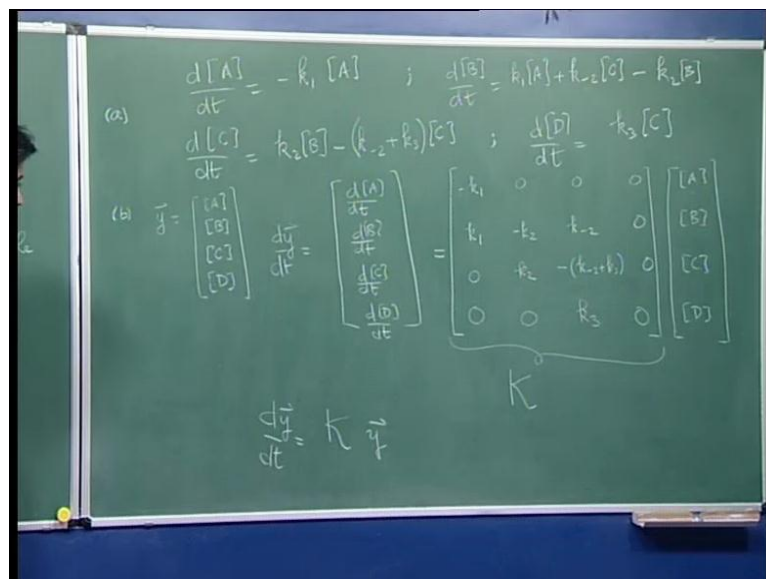 (a) d[A]/dt = -k₁ [A] ; d[B]/dt = k₁[A] + k₋₂[C] - k₂[B]
d[C]/dt = k₂[B] - (k₋₂+k₃)[C] ; d[D]/dt = k₃[C]
(b) y⃗ = [[A] [B] [C] [D]] dy⃗/dt = [d[A]/dt d[B]/dt d[C]/dt d[D]/dt] =
-k₁ 0 0 0 [A]
k₁ -k₂ k₋₂ 0 [B]
0 k₂ -(k₋₂+k₃) 0 [C]
0 0 k₃ 0 [D]
K
dy⃗/dt = K y⃗